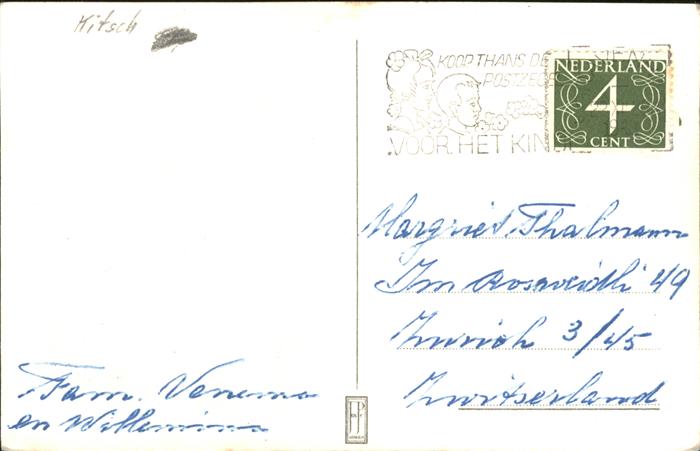 Kitsch
KOOP THANS DE
POSTZEGE
VOOR HET KIN
NEDERLAND
4
CENT
Margriet Thalmann
Im Rossweidli 49
Zurich 3/45
Zwitserland
Fam. Venema
en Willemina